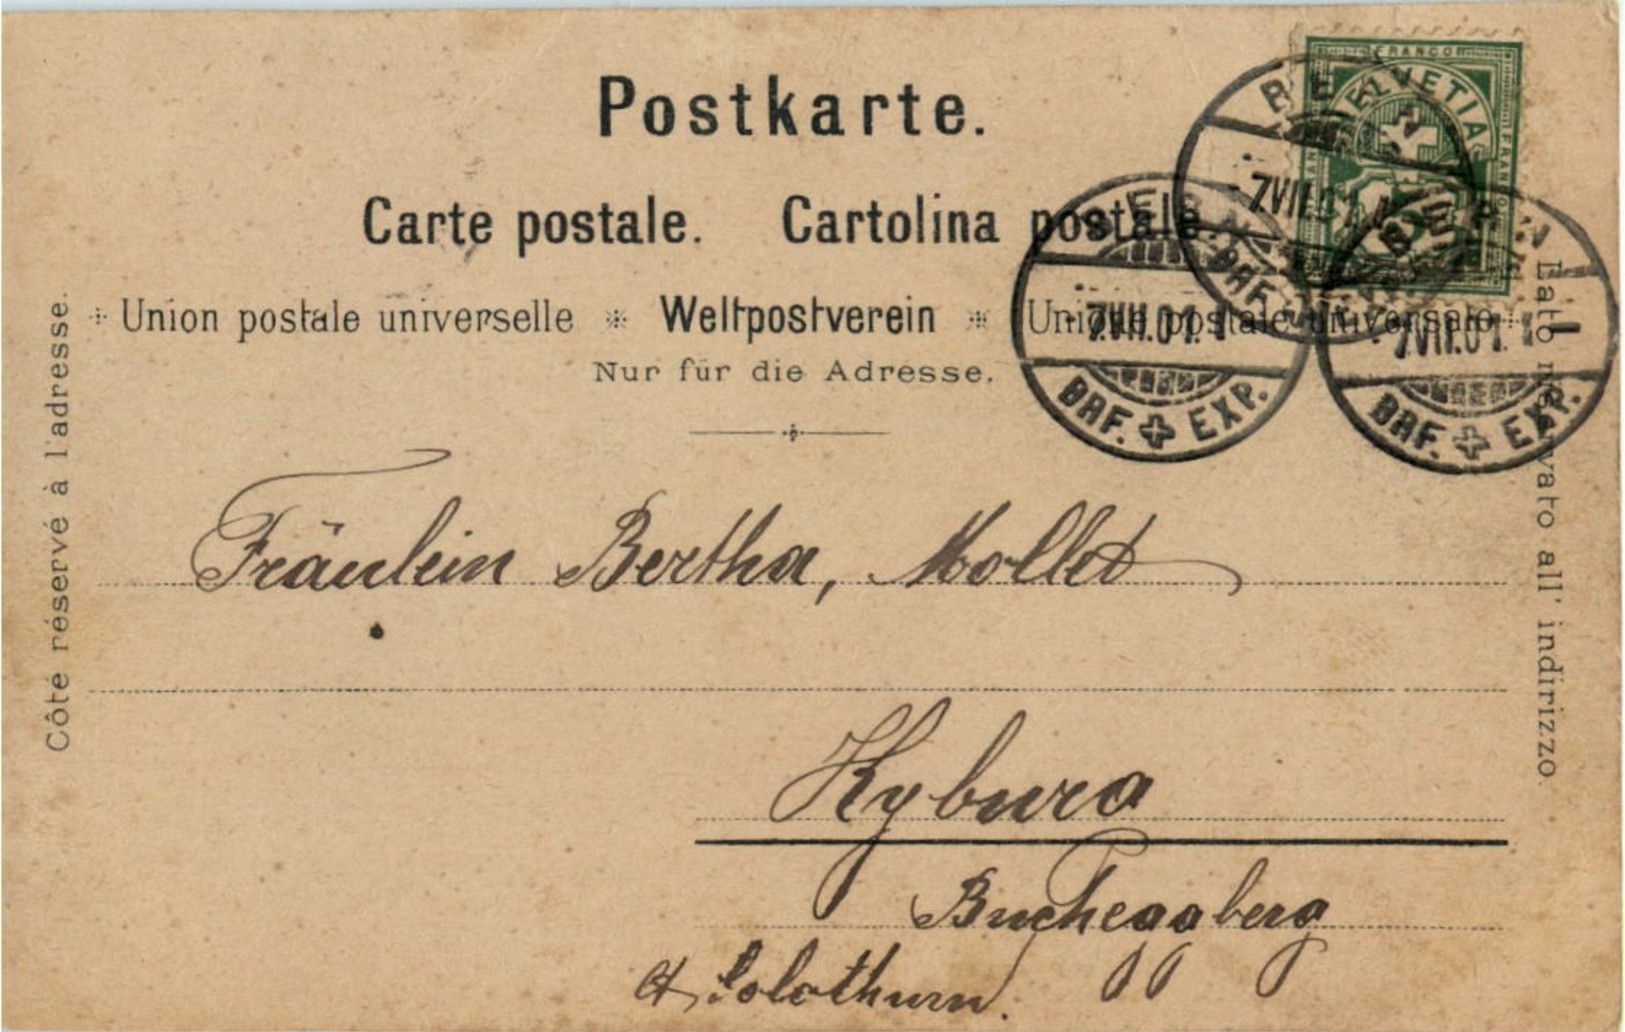 Postkarte.
Carte postale. Cartolina postale.
Union postale universelle Weltpostverein Unione postale universale
Nur für die Adresse.
Côte réservé à l'adresse.
Lato riservato all' indirizzo.
FRANCO
HELVETIA
BERN
7.VII.01
BRF.
BERN
7.VII.01. 1
BRF. EXP.
BERN
7.VII.01. 1
BRF. EXP.
Fräulein Bertha, Mollet
Kyburg
Bucheggberg
Ct. Solothurn.